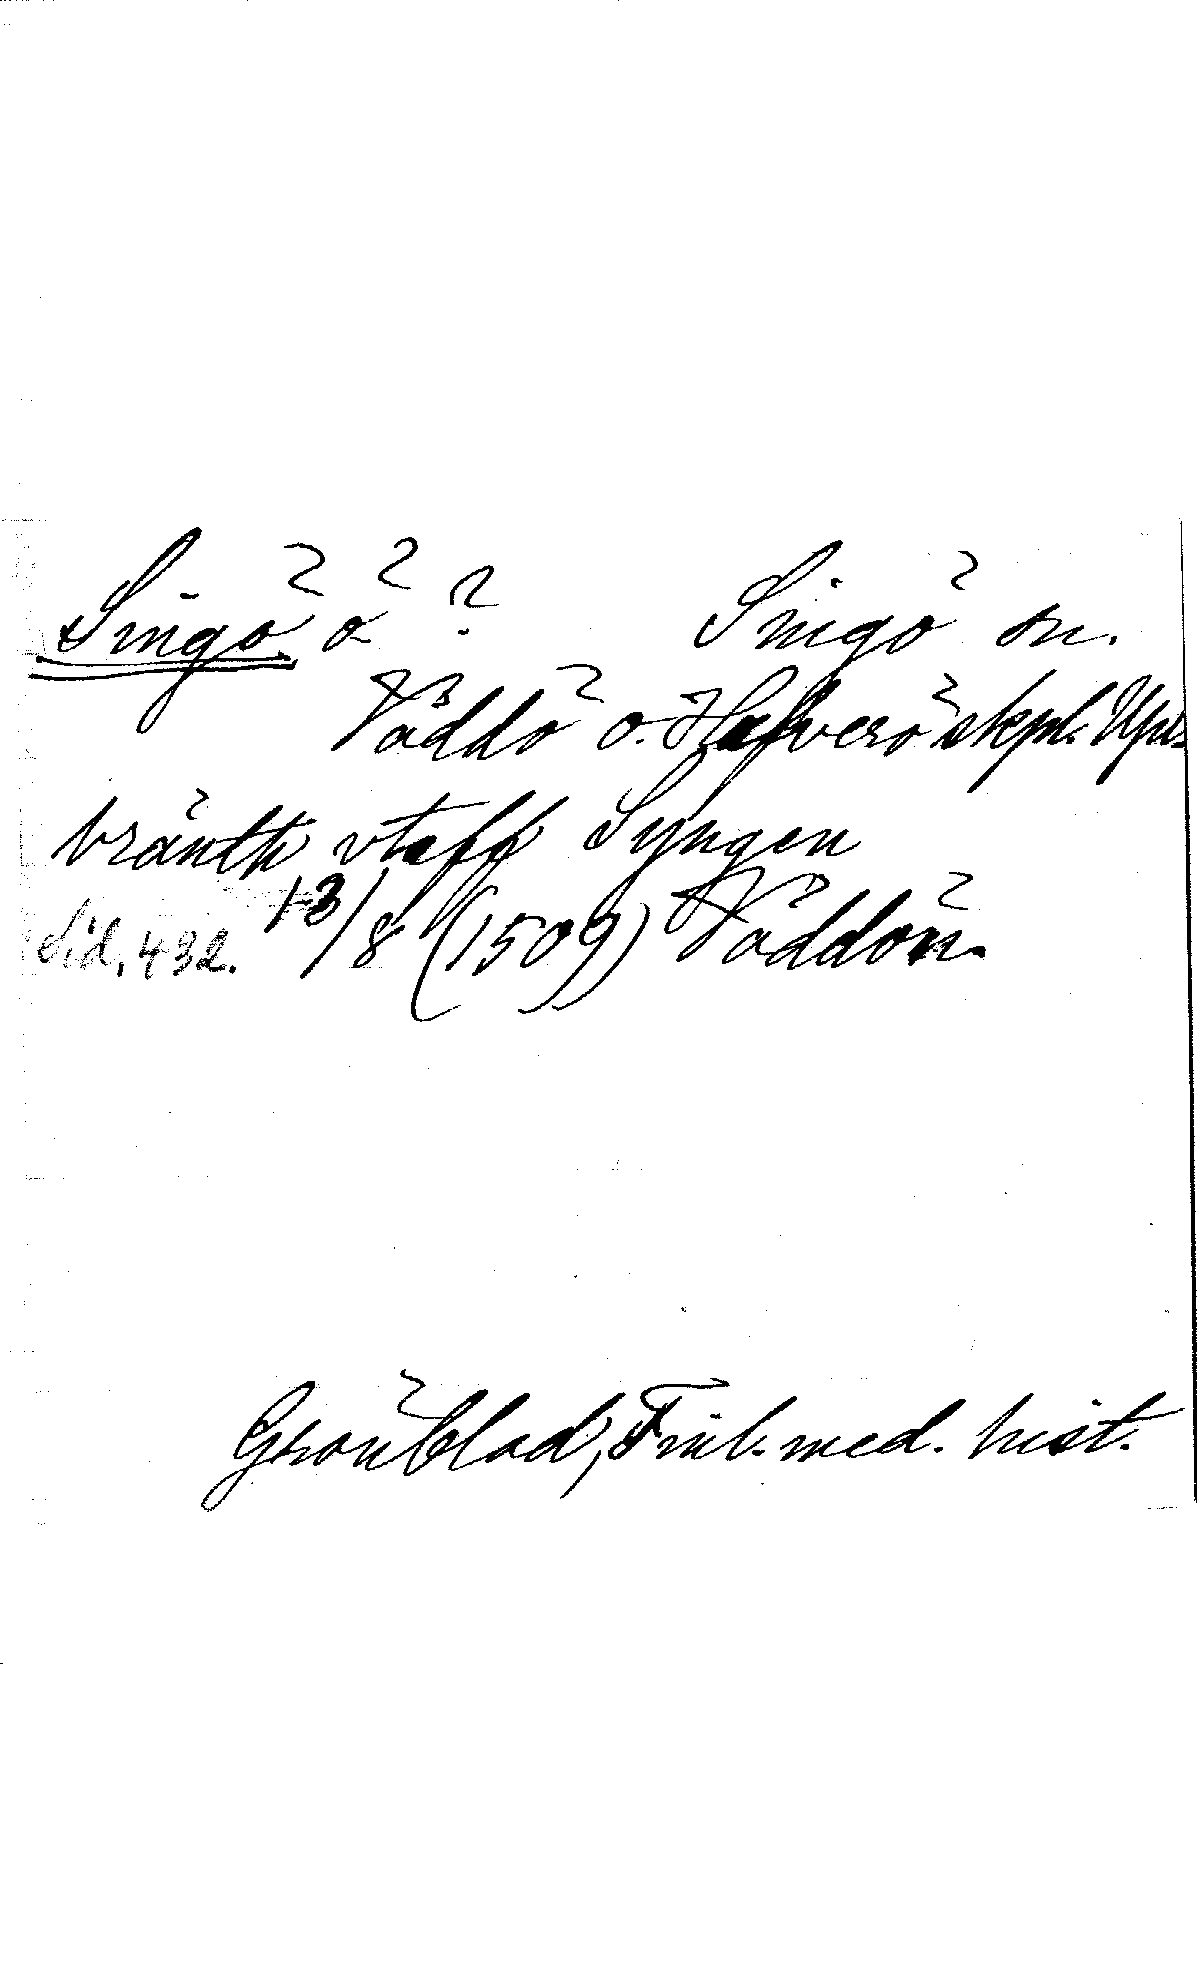 Singö ö ? Singö sn.
Väddö o. Häfverö skpl. Upps.
bränth vtaff Syngen
Sid. 432. 13/8 (1509) Väddön.
Grönblad, Finl. med. hist.